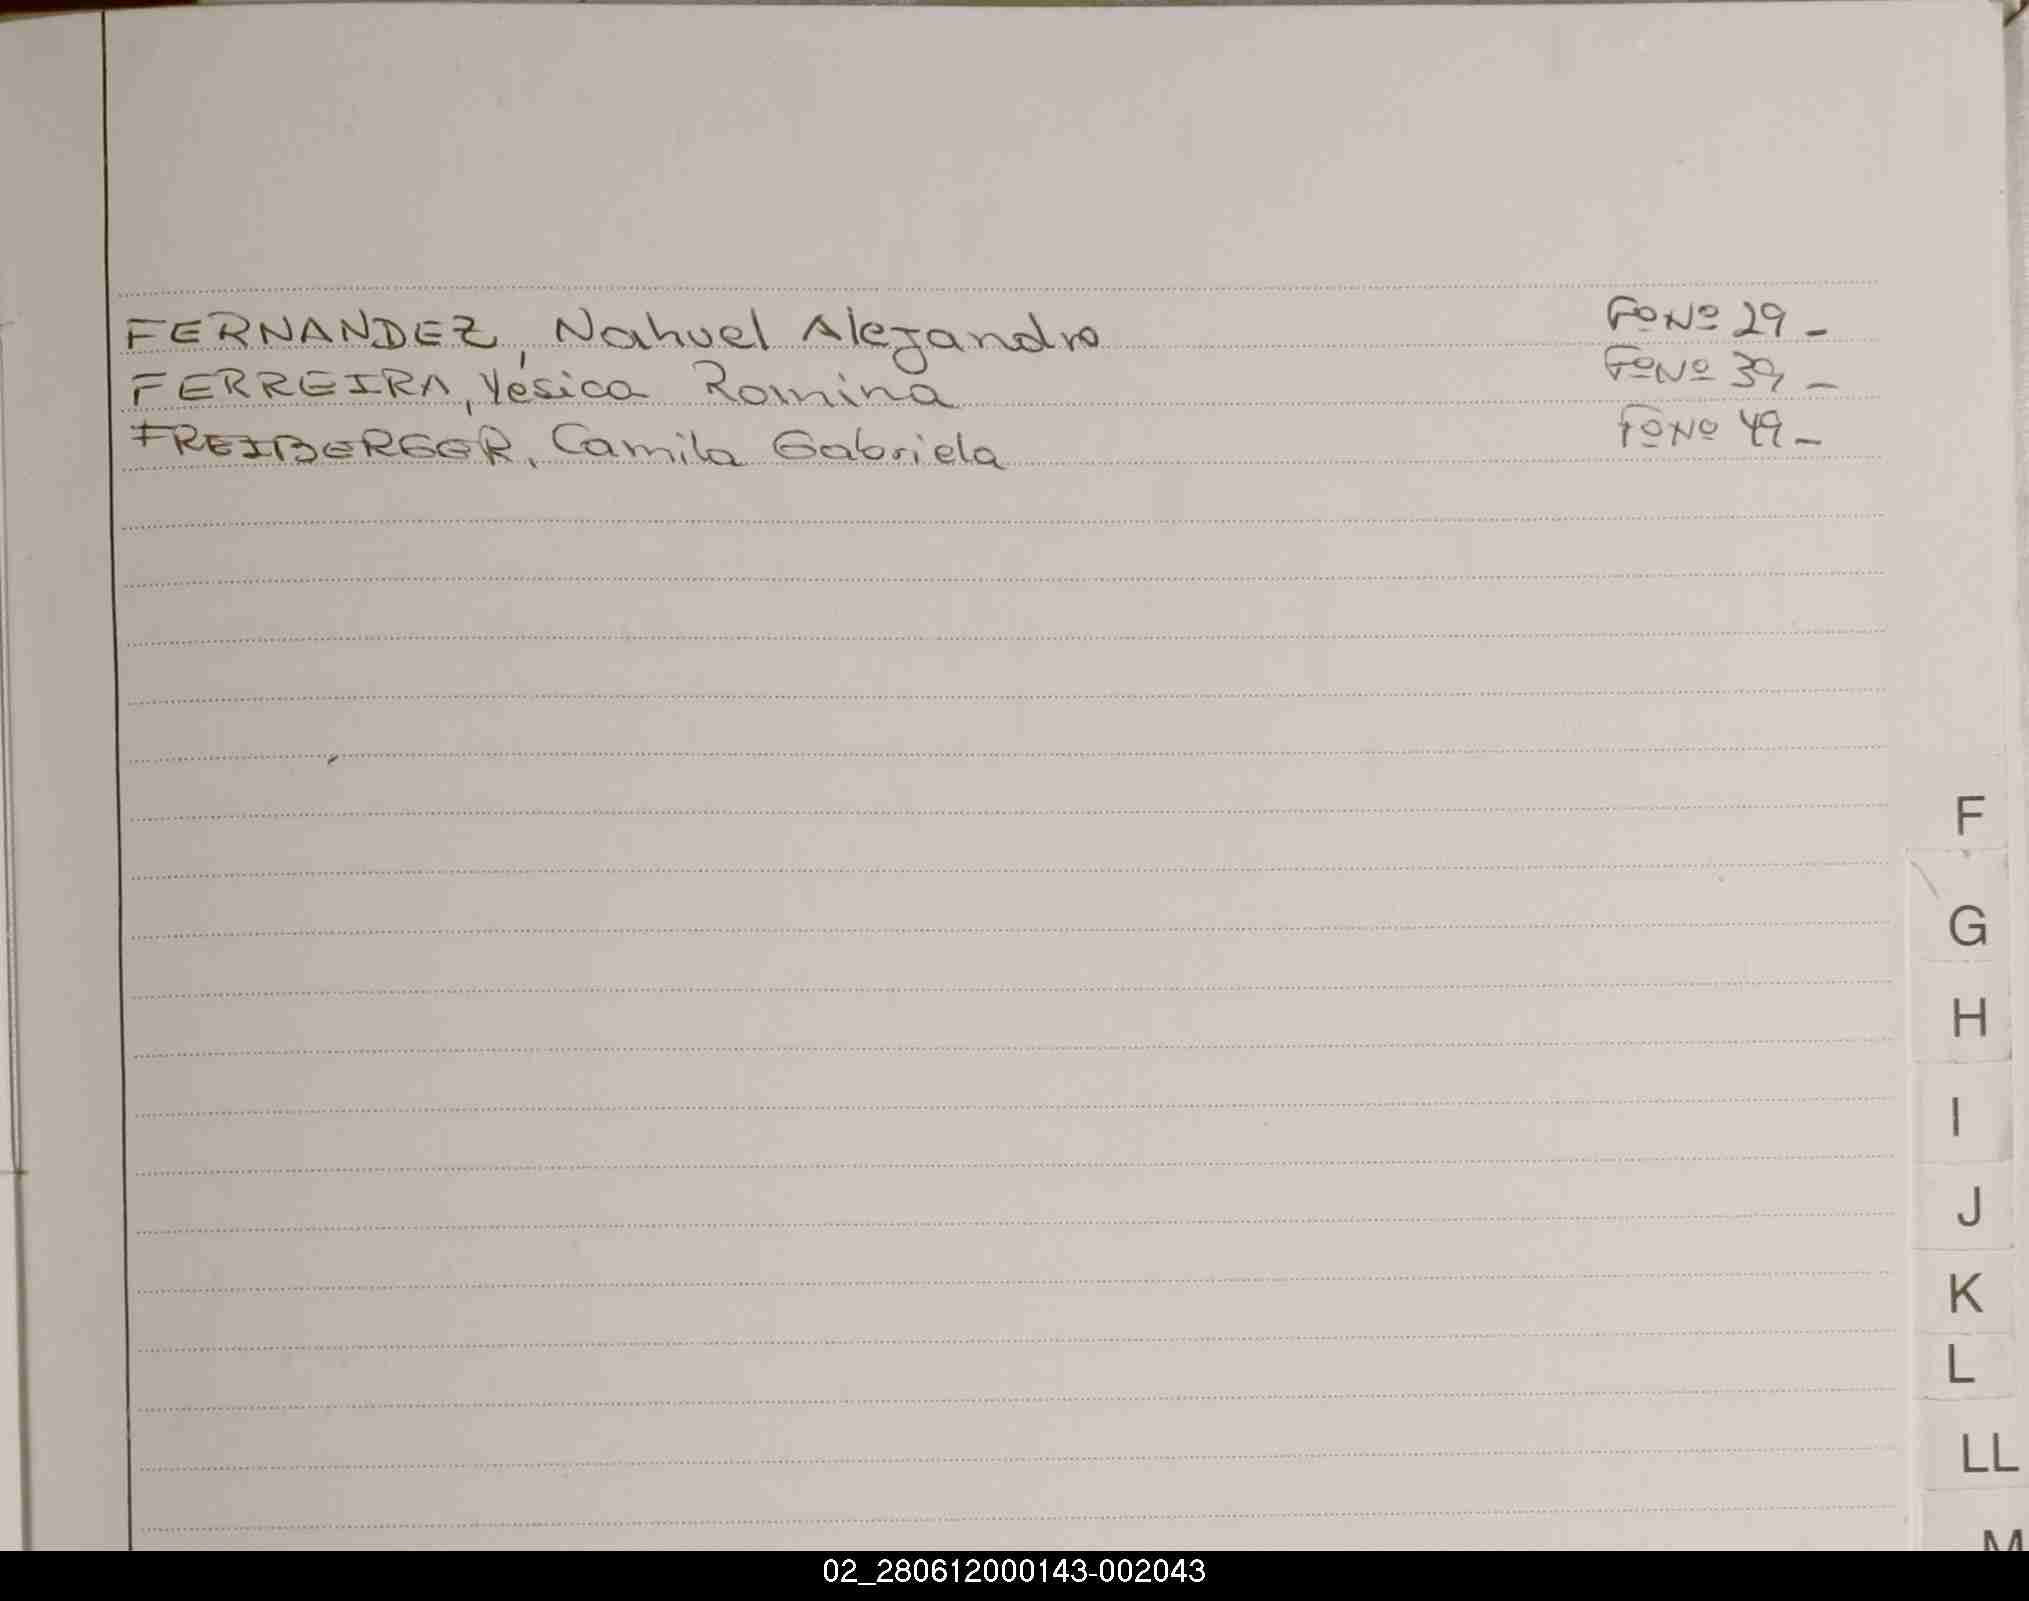 FERNANDEZ, Nahuel Alejandro Fº Nº 29 -
FERREIRA, Yésica Romina Fº Nº 39 -
FREIBERGER, Camila Gabriela Fº Nº 49 -
F
G
H
I
J
K
L
LL
M
02_280612000143-002043